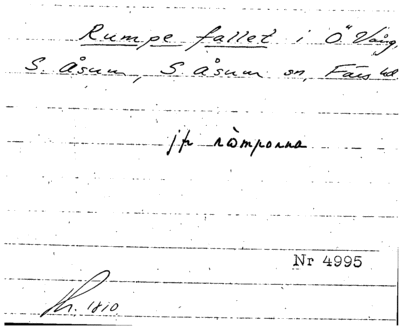 Rumpe fallet i Ö Vång,
S. Åsum, S Åsum sn, Färs hd
jfr rämporna
Nr 4995
1810